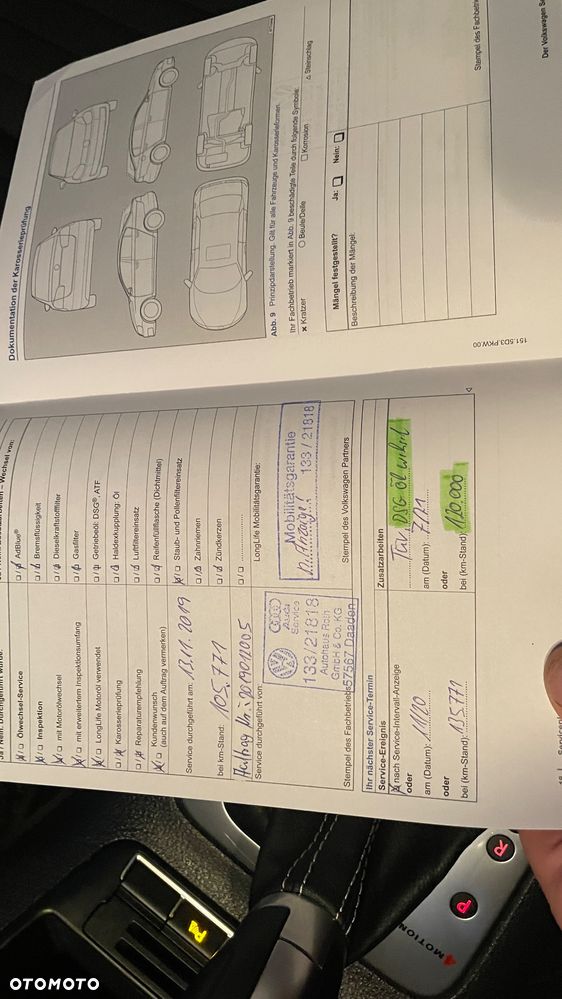 Ja / Nein: Durchgeführt wurde:
☒/☐ Ölwechsel-Service
☒/☐ Inspektion
☒/☐ mit Motorölwechsel
☒/☐ mit erweitertem Inspektionsumfang
☒/☐ LongLife Motoröl verwendet
☐/☒ Karosserieprüfung
☐/☒ Reparaturempfehlung
☒/☐ Kundenwunsch
(auch auf dem Auftrag vermerken)
Service durchgeführt am: 13.11.2019
bei km-Stand: 105.771
Service durchgeführt von:
Audi
Service
133/21818
Autohaus Roth
GmbH & Co. KG
57567 Daaden
Stempel des Fachbetriebs
Wechsel von:
☐/☒ AdBlue®
☐/☒ Bremsflüssigkeit
☐/☒ Dieselkraftstofffilter
☐/☒ Gasfilter
☐/☒ Getriebeöl: DSG®, ATF
☐/☒ Haldexkupplung: Öl
☐/☒ Luftfiltereinsatz
☐/☒ Reifenfüllflasche (Dichtmittel)
☒/☐ Staub- und Pollenfiltereinsatz
☐/☒ Zahnriemen
☐/☒ Zündkerzen
☐/☐
LongLife Mobilitätsgarantie:
Mobilitätsgarantie
n. Anzeige! 133 / 21818
Stempel des Volkswagen Partners
Ihr nächster Service-Termin
Service-Ereignis
☒ nach Service-Intervall-Anzeige
oder
am (Datum): 11/20
oder
bei (km-Stand): 135.771
Zusatzarbeiten
Tüv, DSG Öl
am (Datum): 7/21
oder
bei (km-Stand): 120.000
Dokumentation der Karosserieprüfung
Abb. 9 Prinzipdarstellung. Gilt für alle Fahrzeuge und Karosserieformen.
Ihr Fachbetrieb markiert in Abb. 9 beschädigte Teile durch folgende Symbole:
x Kratzer ○ Beule/Delle □ Korrosion △ Steinschlag
Mängel festgestellt? Ja: ☐ Nein: ☐
Beschreibung der Mängel:
Stempel des Fachbetriebs
Der Volkswagen
151.5D3.PKW.00
4MOTION
P
R
OTOMOTO